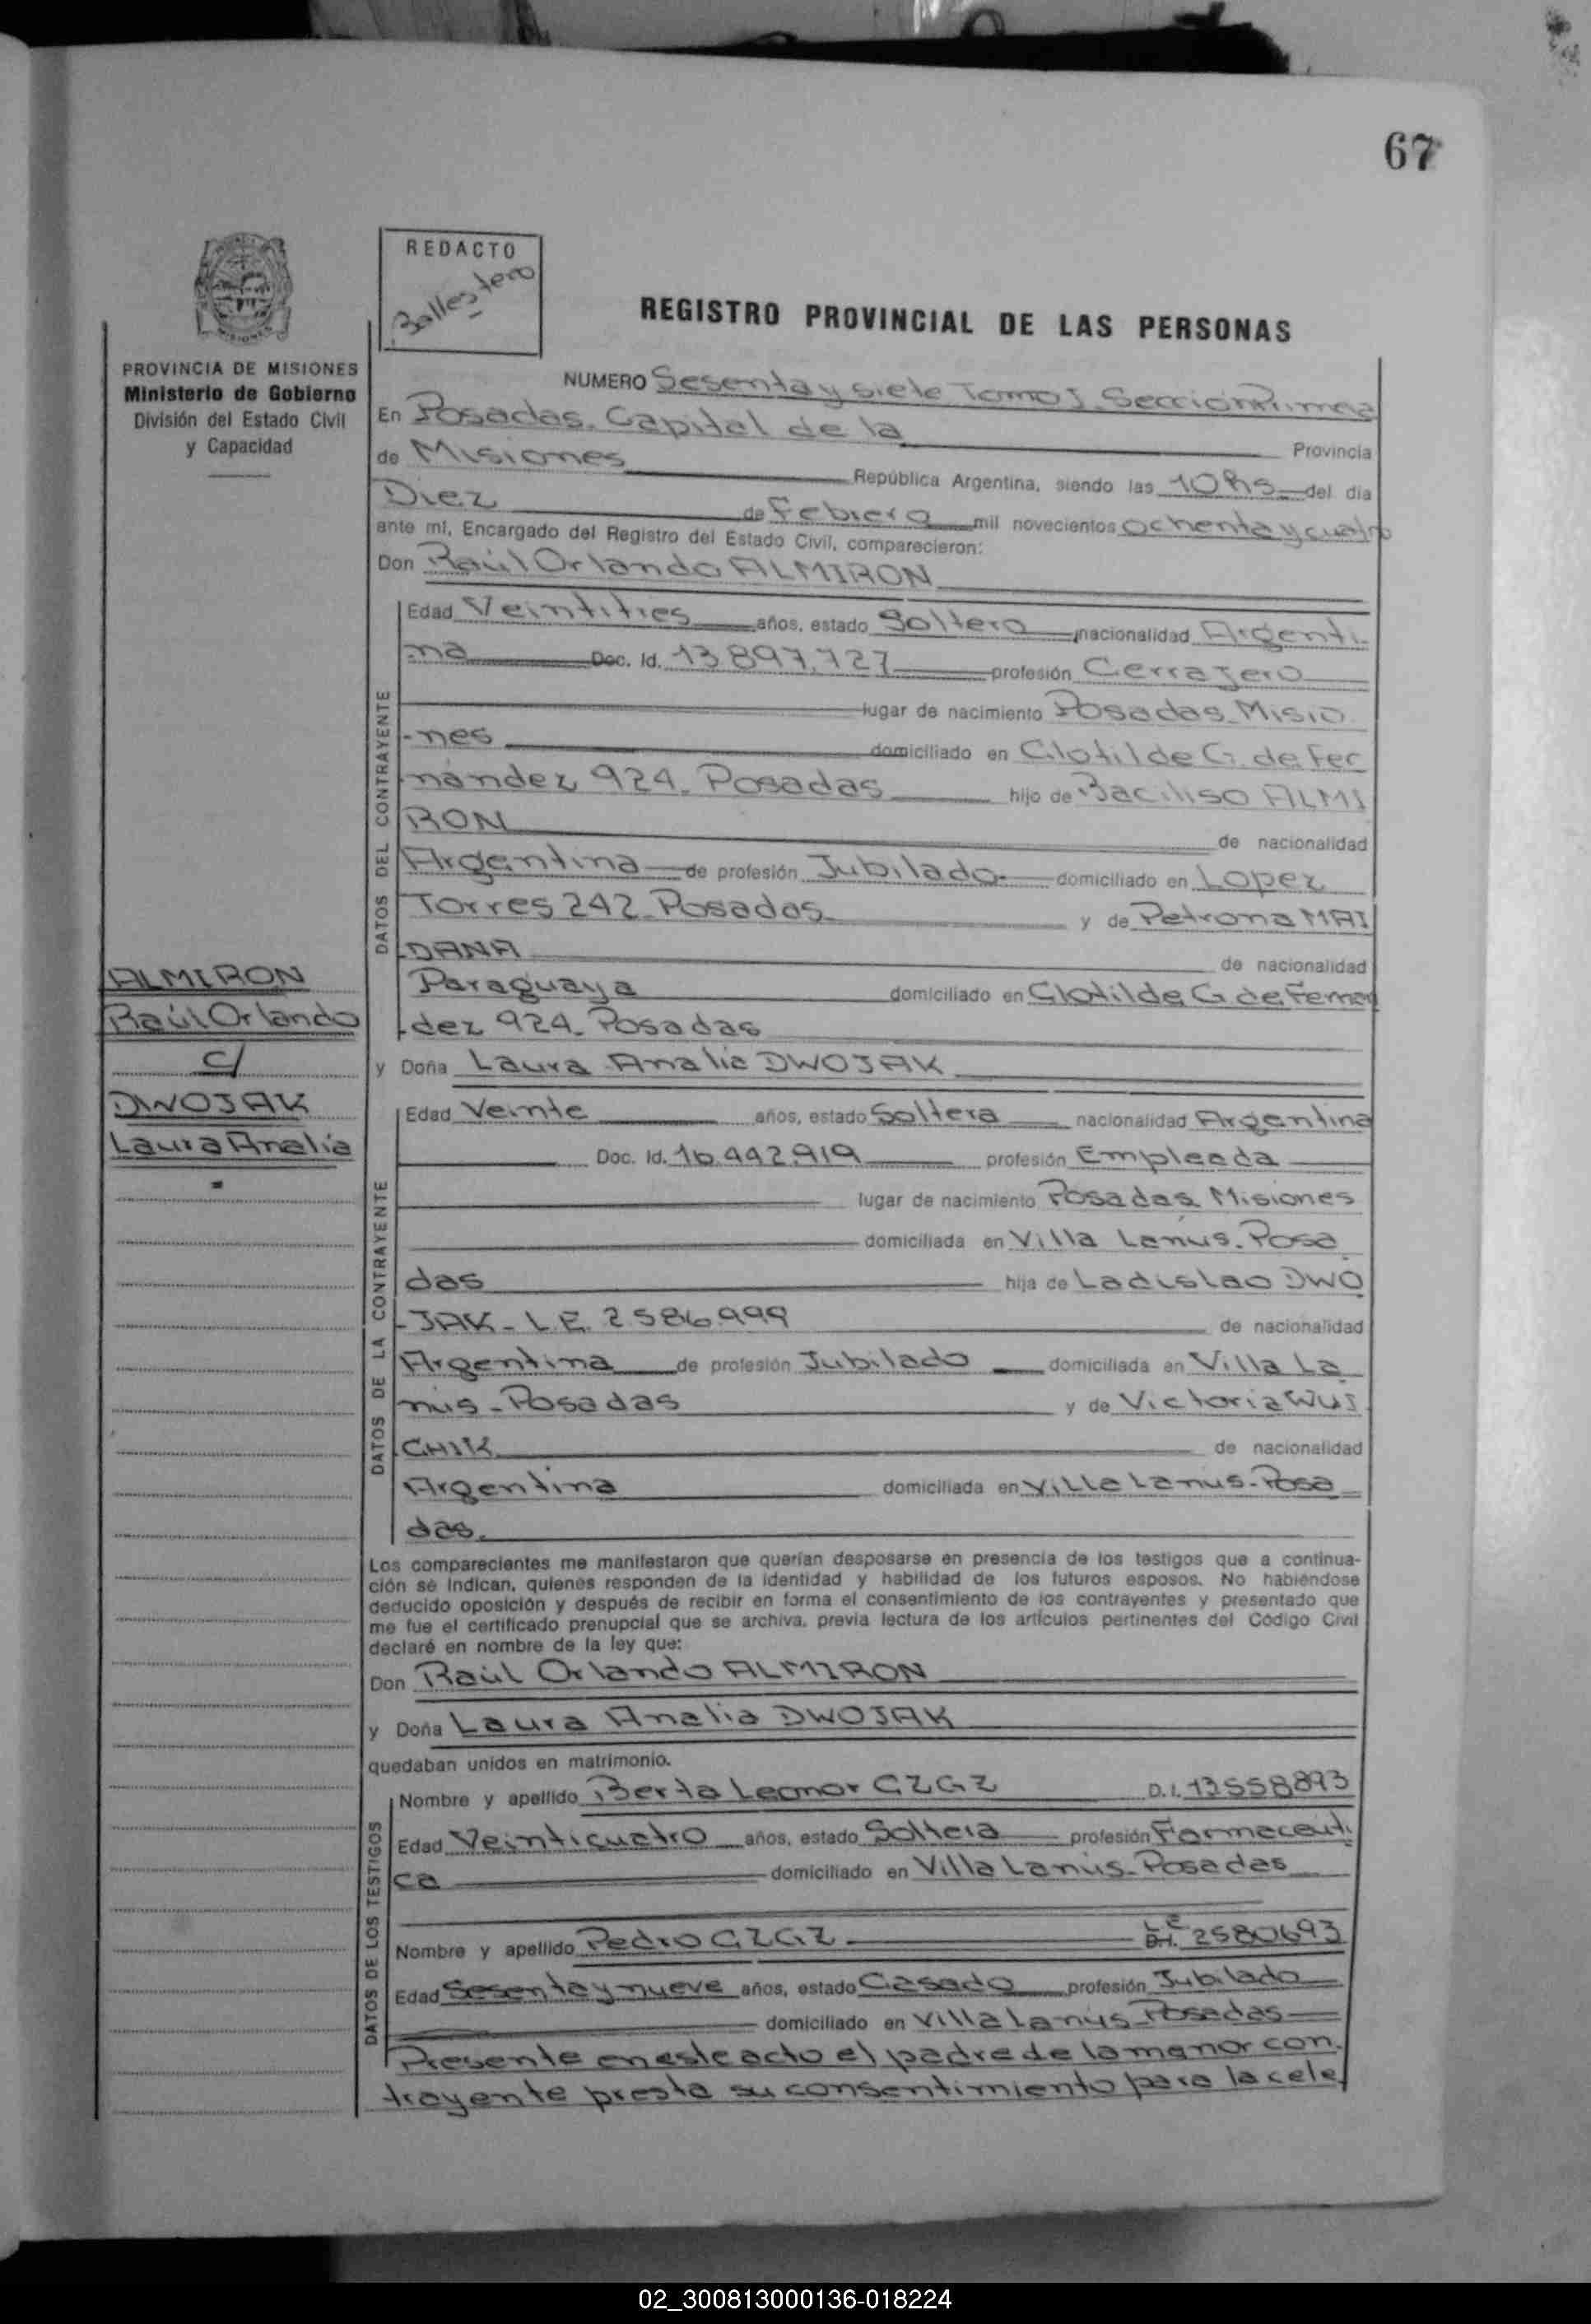 67
REDACTO
Ballestero
REGISTRO PROVINCIAL DE LAS PERSONAS
PROVINCIA DE MISIONES
Ministerio de Gobierno
División del Estado Civil
y Capacidad
NUMERO Sesenta y siete Tomo I Seccion Primera
En Posadas. Capital de la Provincia
de Misiones República Argentina, siendo las 10 hs del día
Diez de Febrero mil novecientos ochenta y cuatro
ante mí, Encargado del Registro del Estado Civil, comparecieron:
Don Raúl Orlando ALMIRON
DATOS DEL CONTRAYENTE
Edad Veintitres años, estado Soltero nacionalidad Argenti
na Doc. Id. 13.897.727 profesión Cerrajero
lugar de nacimiento Posadas Misio
-nes domiciliado en Clotilde G. de Fer
nandez 924. Posadas hijo de Baciliso ALMI
RON de nacionalidad
Argentina de profesión Jubilado domiciliado en Lopez
Torres 242 Posadas y de Petrona MAI
DANA de nacionalidad
Paraguaya domiciliado en Clotilde G. de Fernan
dez 924. Posadas
ALMIRON
Raúl Orlando
c/
DWOJAK
Laura Analia
y Doña Laura Analia DWOJAK
DATOS DE LA CONTRAYENTE
Edad Veinte años, estado Soltera nacionalidad Argentina
Doc. Id. 16.442.919 profesión Empleada
lugar de nacimiento Posadas Misiones
domiciliada en Villa Lanús. Posa
das hija de Ladislao DWO
-JAK - L.E. 2.586.999 de nacionalidad
Argentina de profesión Jubilado domiciliada en Villa La
nús - Posadas y de Victoria WUJ
CHIK de nacionalidad
Argentina domiciliada en Villa Lanus - Posa
das.
Los comparecientes me manifestaron que querían desposarse en presencia de los testigos que a continua-
ción se indican, quienes responden de la identidad y habilidad de los futuros esposos. No habiéndose
deducido oposición y después de recibir en forma el consentimiento de los contrayentes y presentado que
me fue el certificado prenupcial que se archiva, previa lectura de los artículos pertinentes del Código Civil
declaré en nombre de la ley que:
Don Raúl Orlando ALMIRON
y Doña Laura Analia DWOJAK
quedaban unidos en matrimonio.
DATOS DE LOS TESTIGOS
Nombre y apellido Berta Leonor D.I. 13558893
Edad Veinticuatro años, estado Soltera profesión Farmaceuti
ca domiciliado en Villa Lanús - Posadas
Nombre y apellido Pedro L E D.I. 2580693
Edad Sesenta y nueve años, estado Casado profesión Jubilado
domiciliado en Villa Lanús - Posadas
Presente en este acto el padre de la menor con.
trayente presta su consentimiento para la cele
02_300813000136-018224